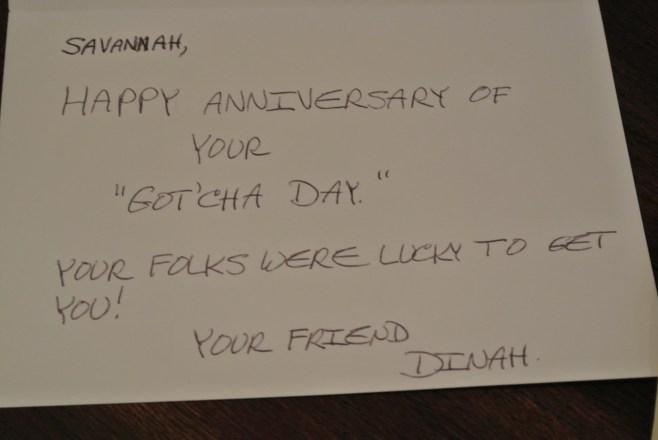 SAVANNAH,
HAPPY ANNIVERSARY OF
YOUR
"GOT'CHA DAY."
YOUR FOLKS WERE LUCKY TO GET
YOU!
YOUR FRIEND
DINAH.